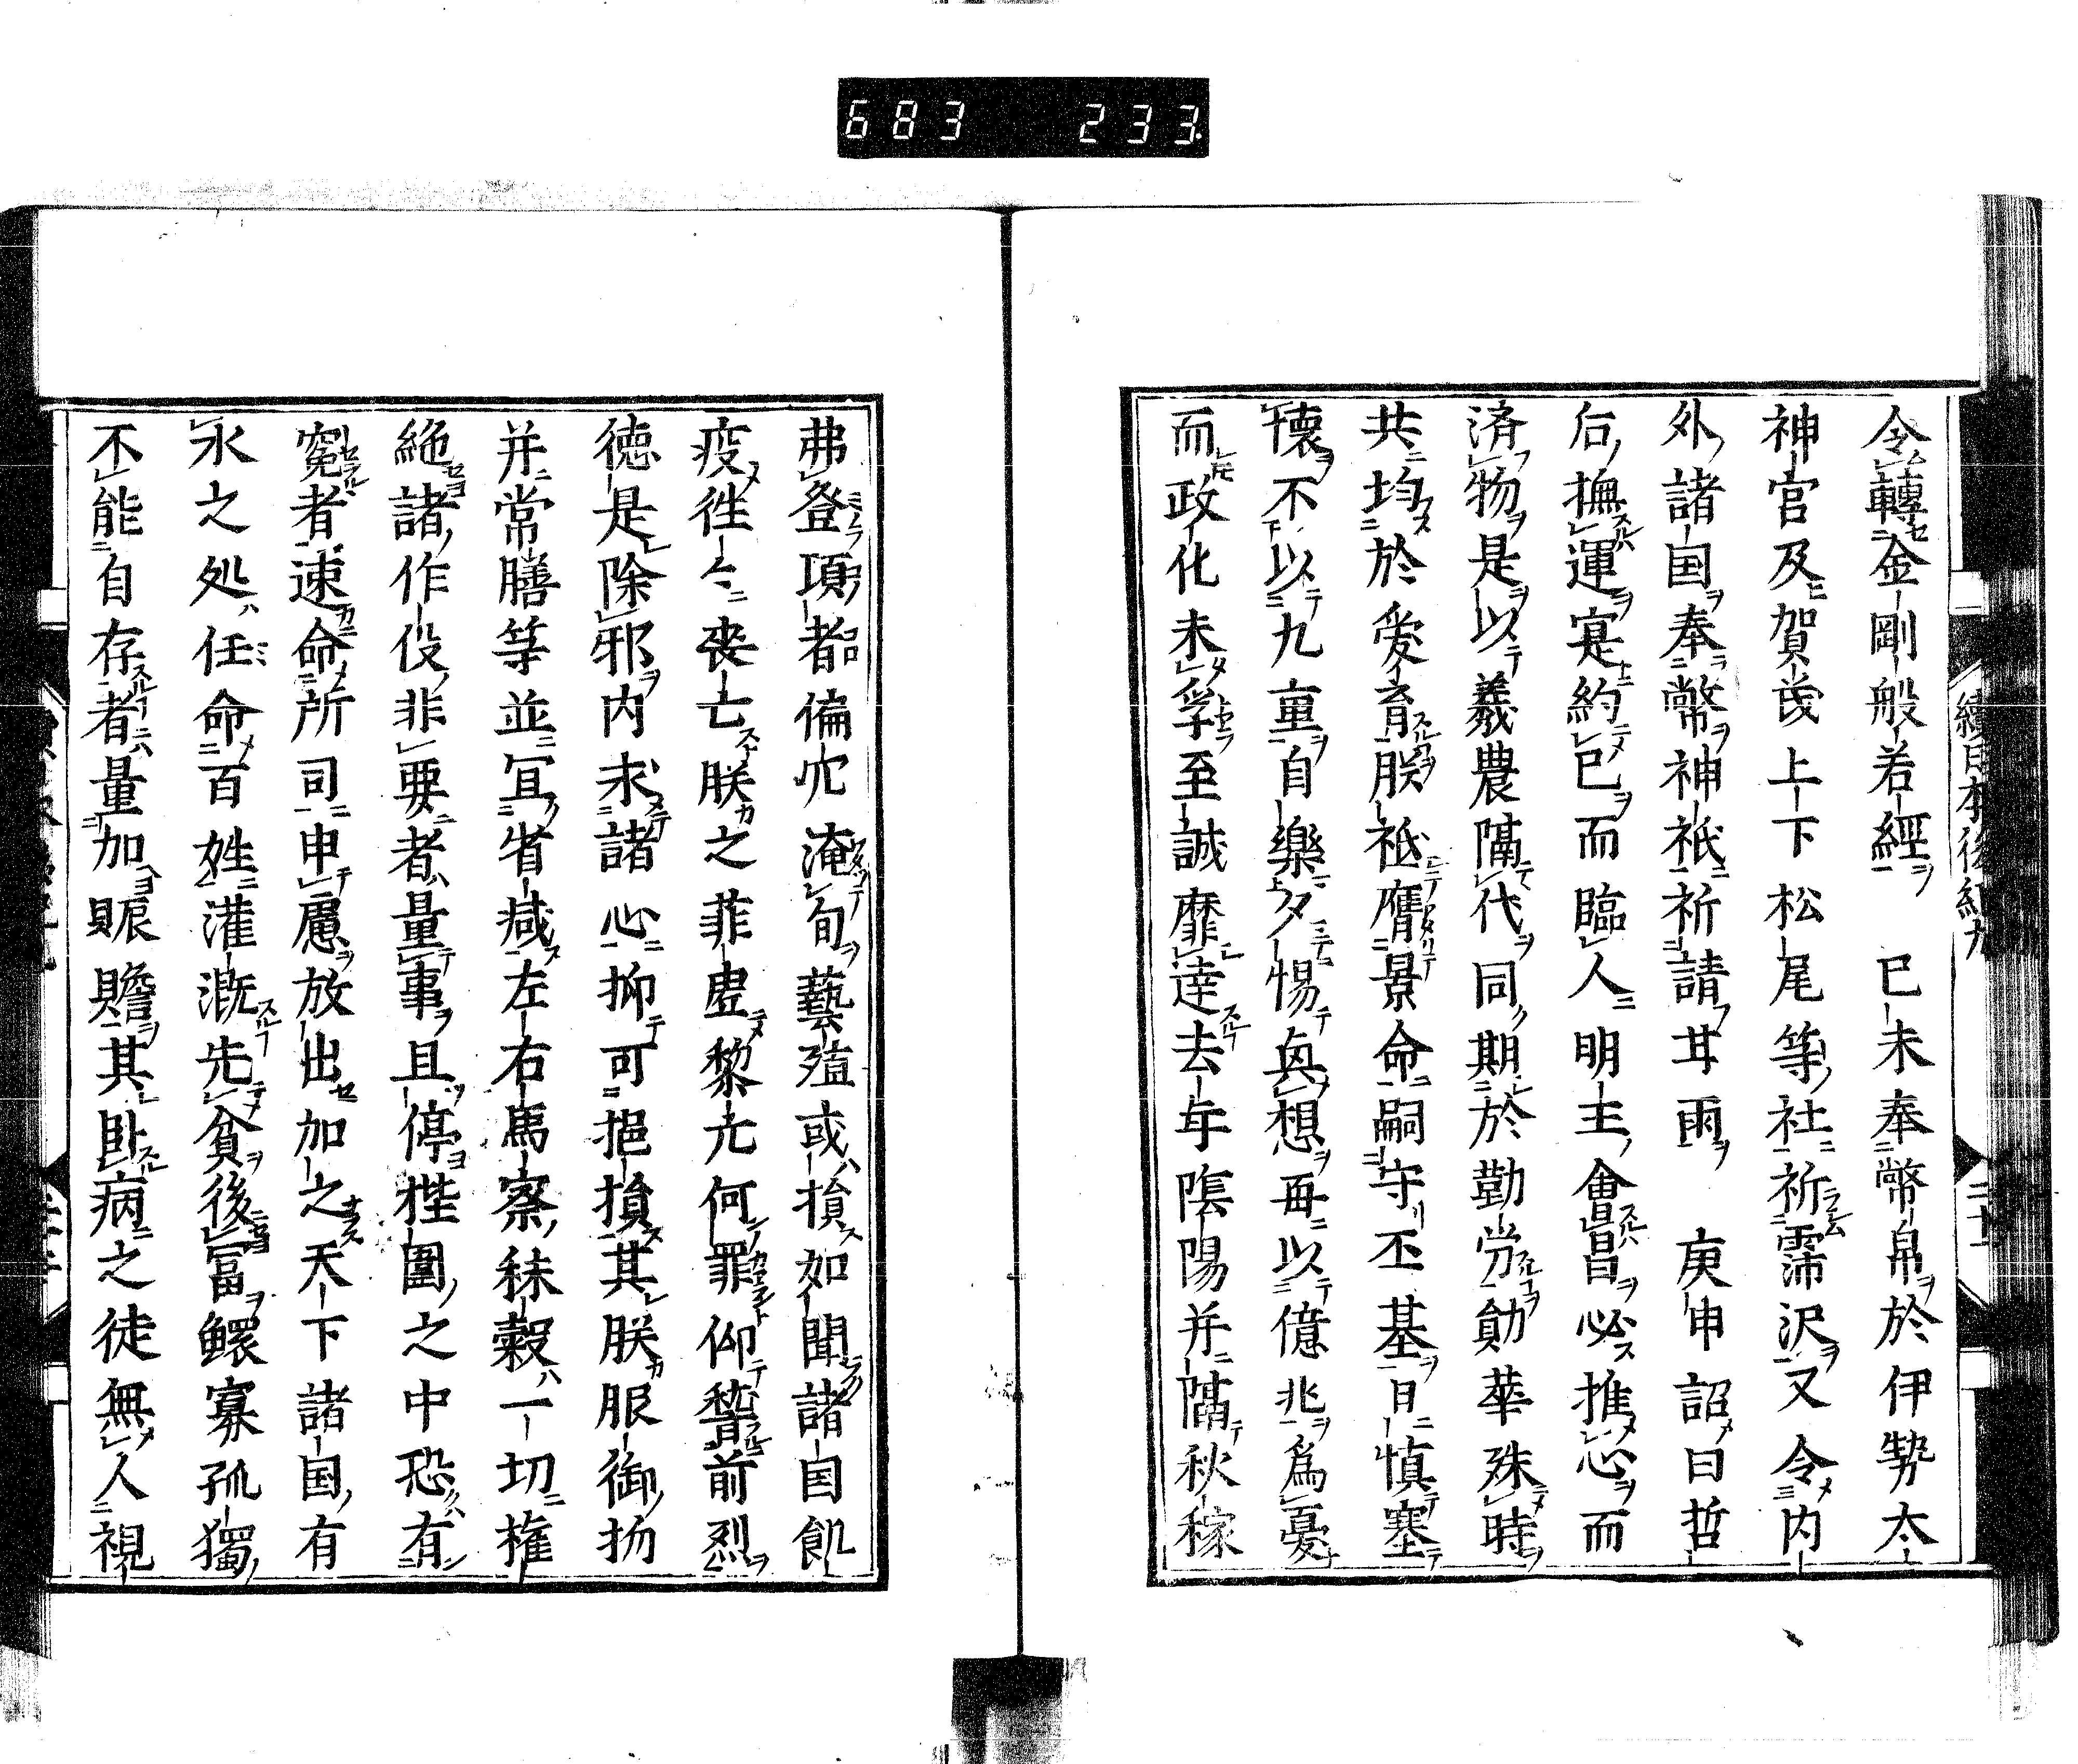 683 233
續日本後紀九
令轉金剛般若経 已未奉幣帛於伊勢太
神官及賀茂上下松尾等社祈霈沢又令内
外諸国奉幣神祇祈請甘雨 庚申詔曰哲
后撫運寔約已而臨人明主會昌必推心而
済物是以羲農隔代同期於勤労勛華殊時
共均於愛育朕祗膺景命嗣守丕基日慎塞
懐不以九重自樂夕惕輿想再以億兆為憂
而政化未孚至誠靡達去年陰陽并隔秋稼
弗登項者偏穴淹旬藝殖或損如聞諸国飢
疫徃々喪亡朕之菲虚黎元何罪仰瞽前烈
徳是除邪内求諸心抑可挹損其朕服御物
并常膳等並宜省減左右馬寮秣穀一切権
絶諸作役非要者量事且停狴圄之中恐有
寃者速命所司申慮放出加之天下諸国有
水之処任命百姓灌漑先貧後冨鰥寡孤獨
不能自存者量加賑贍其臥病之徒無人視